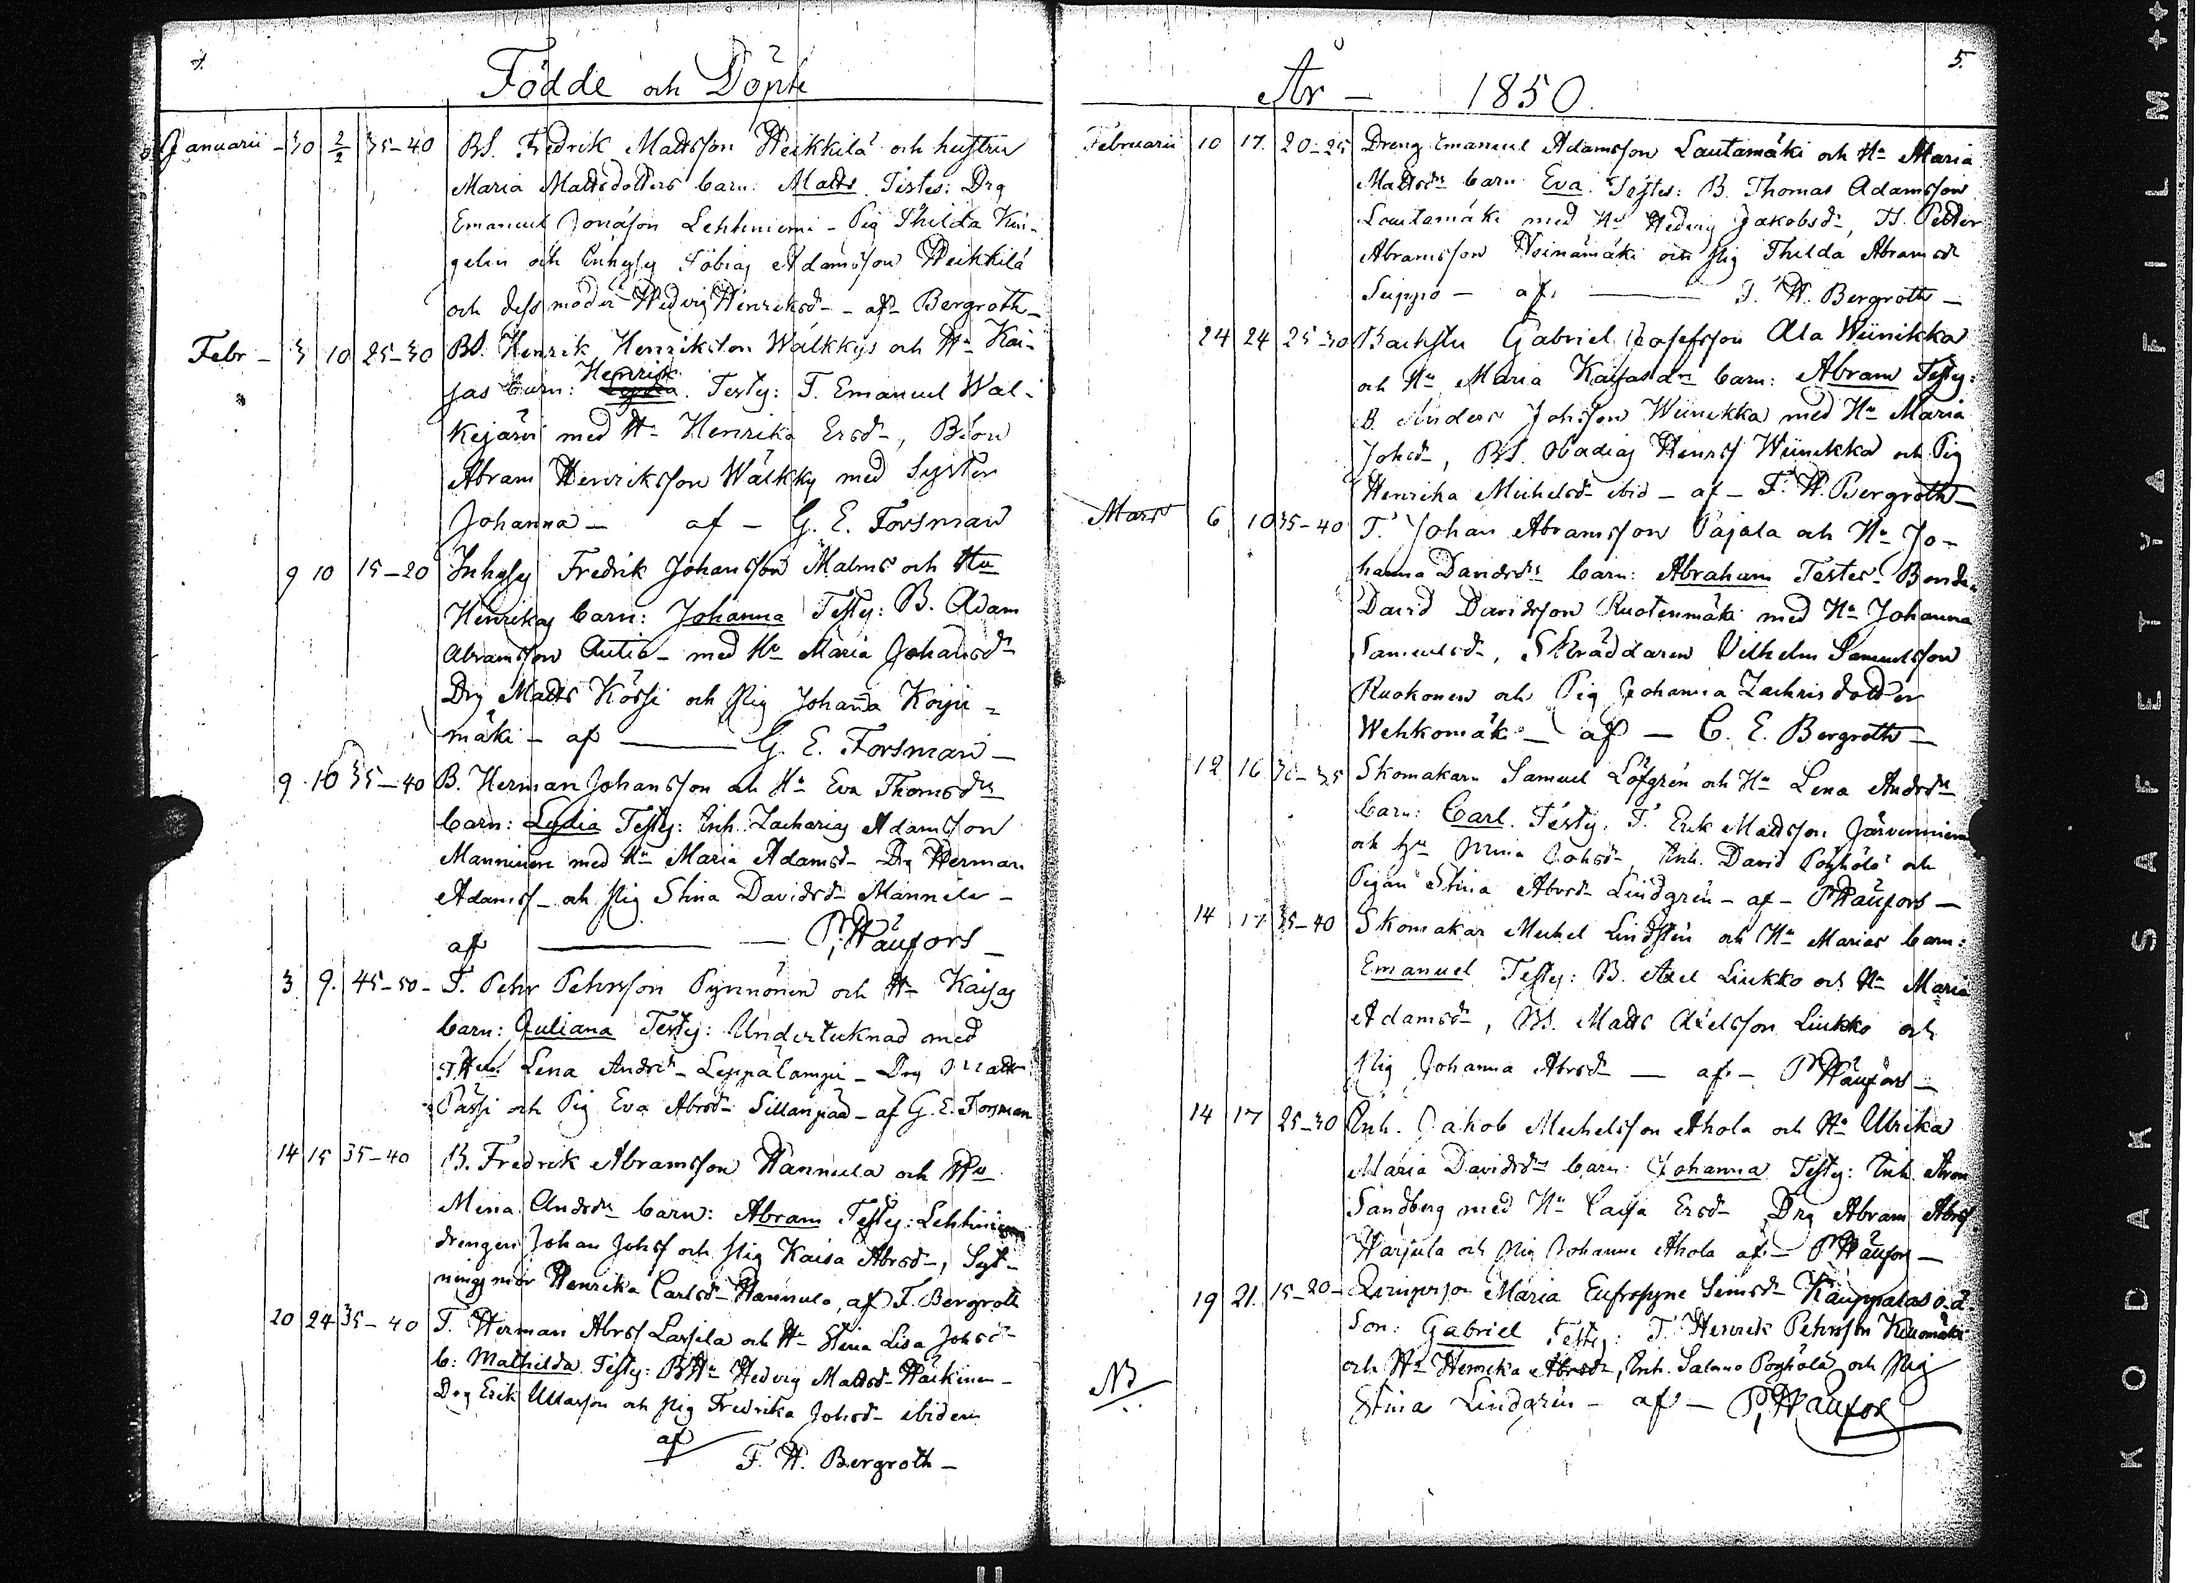 4.
Födde och Döpte
Januarii - 30 2/2 35-40 BS. Fredrik Mattsson Heikkilä och hustru
Maria Mattsdotters barn: Matts Testes: Drg
Emanuel Jonasson Lehtiniemi - Pig Thilda Kin-
gelin och Enhysg Tobias Adamsson Heikkilä
och dess moder Hedvig Henriksd - af Bergroth -
Febr - 3 10 25-30 BS. Henrik Henriksson Wälkkys och Hu Kai-
jas barn: Henrik. Testes: T. Emanuel Wal-
kejärvi med Hu Henrika Ersd -, Bson
Abram Henriksson Wälkky med Syster
Johanna - af - G. E. Forsman
9 10 15-20 Inhysg Fredrik Johansson Malms och Hu
Henrikas barn: Johanna Testes: B. Adam
Abramsson Antia - med Hu Maria Johansdr
Drg Matts Kössi och Pig Johanna Koipi-
mäki - af - G. E. Forsman -
9 10 35-40 B. Herman Johansson och Hu Eva Thomsdrs
barn: Lydia Testes: Inh. Zacharias Adamsson
Manninen med Hu Maria Adamsd - Drg Herman
Adamss - och Pig Stina Davidsd Mannila -
af - P. Häufors -
3 9. 45-50 - T. Pehr Pehrsson Pynnönen och Hu Kaisas
barn: Juliana Testes: Undertecknad med
Lena Andrsd - Leppälampi - Drg Matts
Passi och Pig Eva Abrsd - Sillanpää - af G. E. Forsman
14 15 35-40 B. Fredrik Abramsson Hannula och Hu
Mina Andrsdrs barn: Abram Testes: Lehtiniemi
drengen Johan Johss och Pig Kaisa Abrsd -, Syt-
ningsmor Henrika Carlsd - Hannula, af F. Bergroth
20 24 35-40 T. Herman Abrss Lassila och Hu Stina Lisa Johsdrs
b: Mathilda. Testes: BHu Hedvig Mattsd - Häkkinen -
Drg Erik Mattsson och Pig Fredrika Johsd - ibidem
af
F. H. Bergroth -
5.
År - 1850.
Februarii 10 17. 20-25 Dreng Emanuel Adamsson Lautamäki och Hu Maria
Mattsdrs barn Eva. Testes: B. Thomas Adamsson
Lautamäki med Hu Hedvig Jakobsd -, T. Petter
Abramsson Heinämäki och Pig Thilda Abramsd
Seippo - af - F. H. Bergroth -
24 24 25-30 Gabriel Josefsson Ala Wiinikka
och Hu Maria Kaisasdrs barn: Abram Testes:
B. Anders Johsson Wiinikka med Hu Maria
Johsd -, BS. Obadias Henrss Wiinikka och Pig
Henrika Michelsd - ibid - af - F. H. Bergroth -
Mars 6 10 35-40 T. Johan Abramsson Pajala och Hu Jo-
hanna Davidsdrs barn: Abraham Testes - Bonde
David Davidsson Ruotenmäki med Hu Johanna
Samuelsd -, Skräddaren Vilhelm Samuelsson
Ruokonen och Pig Johanna Zachrisdotter
Wehkomäki - af - C. E. Bergroth -
12 16 30-35 Skomakarn Samuel Löfgrén och Hu Lena Andrsdrs
barn: Carl. Testes: T. Erik Mattsson Järvenniemi
och Hu Mina Johsd -, Inh. David Pohjola och
Pigan Stina Abrsd - Lindgrén - af - P Häufors -
14 17 35-40 Skomakar Michel Lindstén och Hu Marias barn:
Emanuel Testes: B. Axel Liukko och Hu Maria
Adamsd -, BS. Matts Axelsson Liukko och
Pig Johanna Abrsd - af - P Häufors -
14 17 25-30 Inh. Jakob Michelsson Ahola och Hu Ulrika
Maria Davidsdrs barn: Johanna Testes: Inh. Aron
Sandberg med Hu Caisa Ersd - Drg Abram Abrss
Harjula och Pig Johanna Ahola af - P Häufors -
19 21. 15-20 - Qvinsperson Maria Eufrosyne Simsd - Kauppalas o.ä
Son: Gabriel Testes: T. Henrik Pehrsson
och Hu Henrika Abrsd -, Inh. Salomo Pohjola och Pig
Stina Lindgrén - af - P. Häufors
NB
KODAK · SAFETY A FILM ++